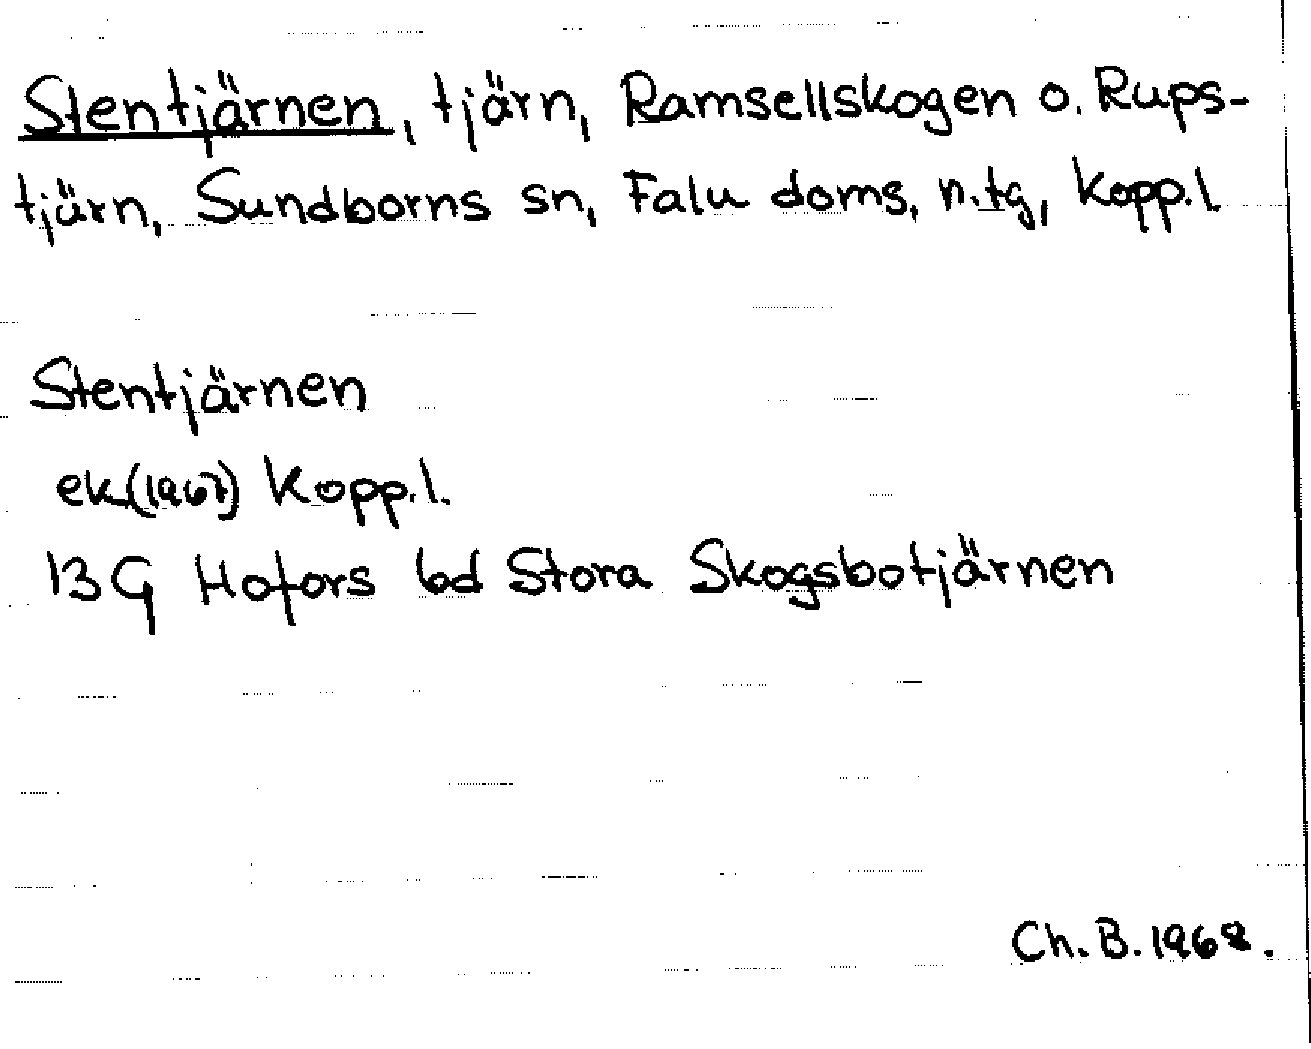 Stentjärnen, tjärn, Ramsellskogen o. Rups-
tjärn, Sundborns sn, Falu doms. n.tg, Kopp.l
Stentjärnen
ek(1967) Kopp.l.
13G Hofors 6d Stora Skogsbotjärnen
Ch.B. 1968.